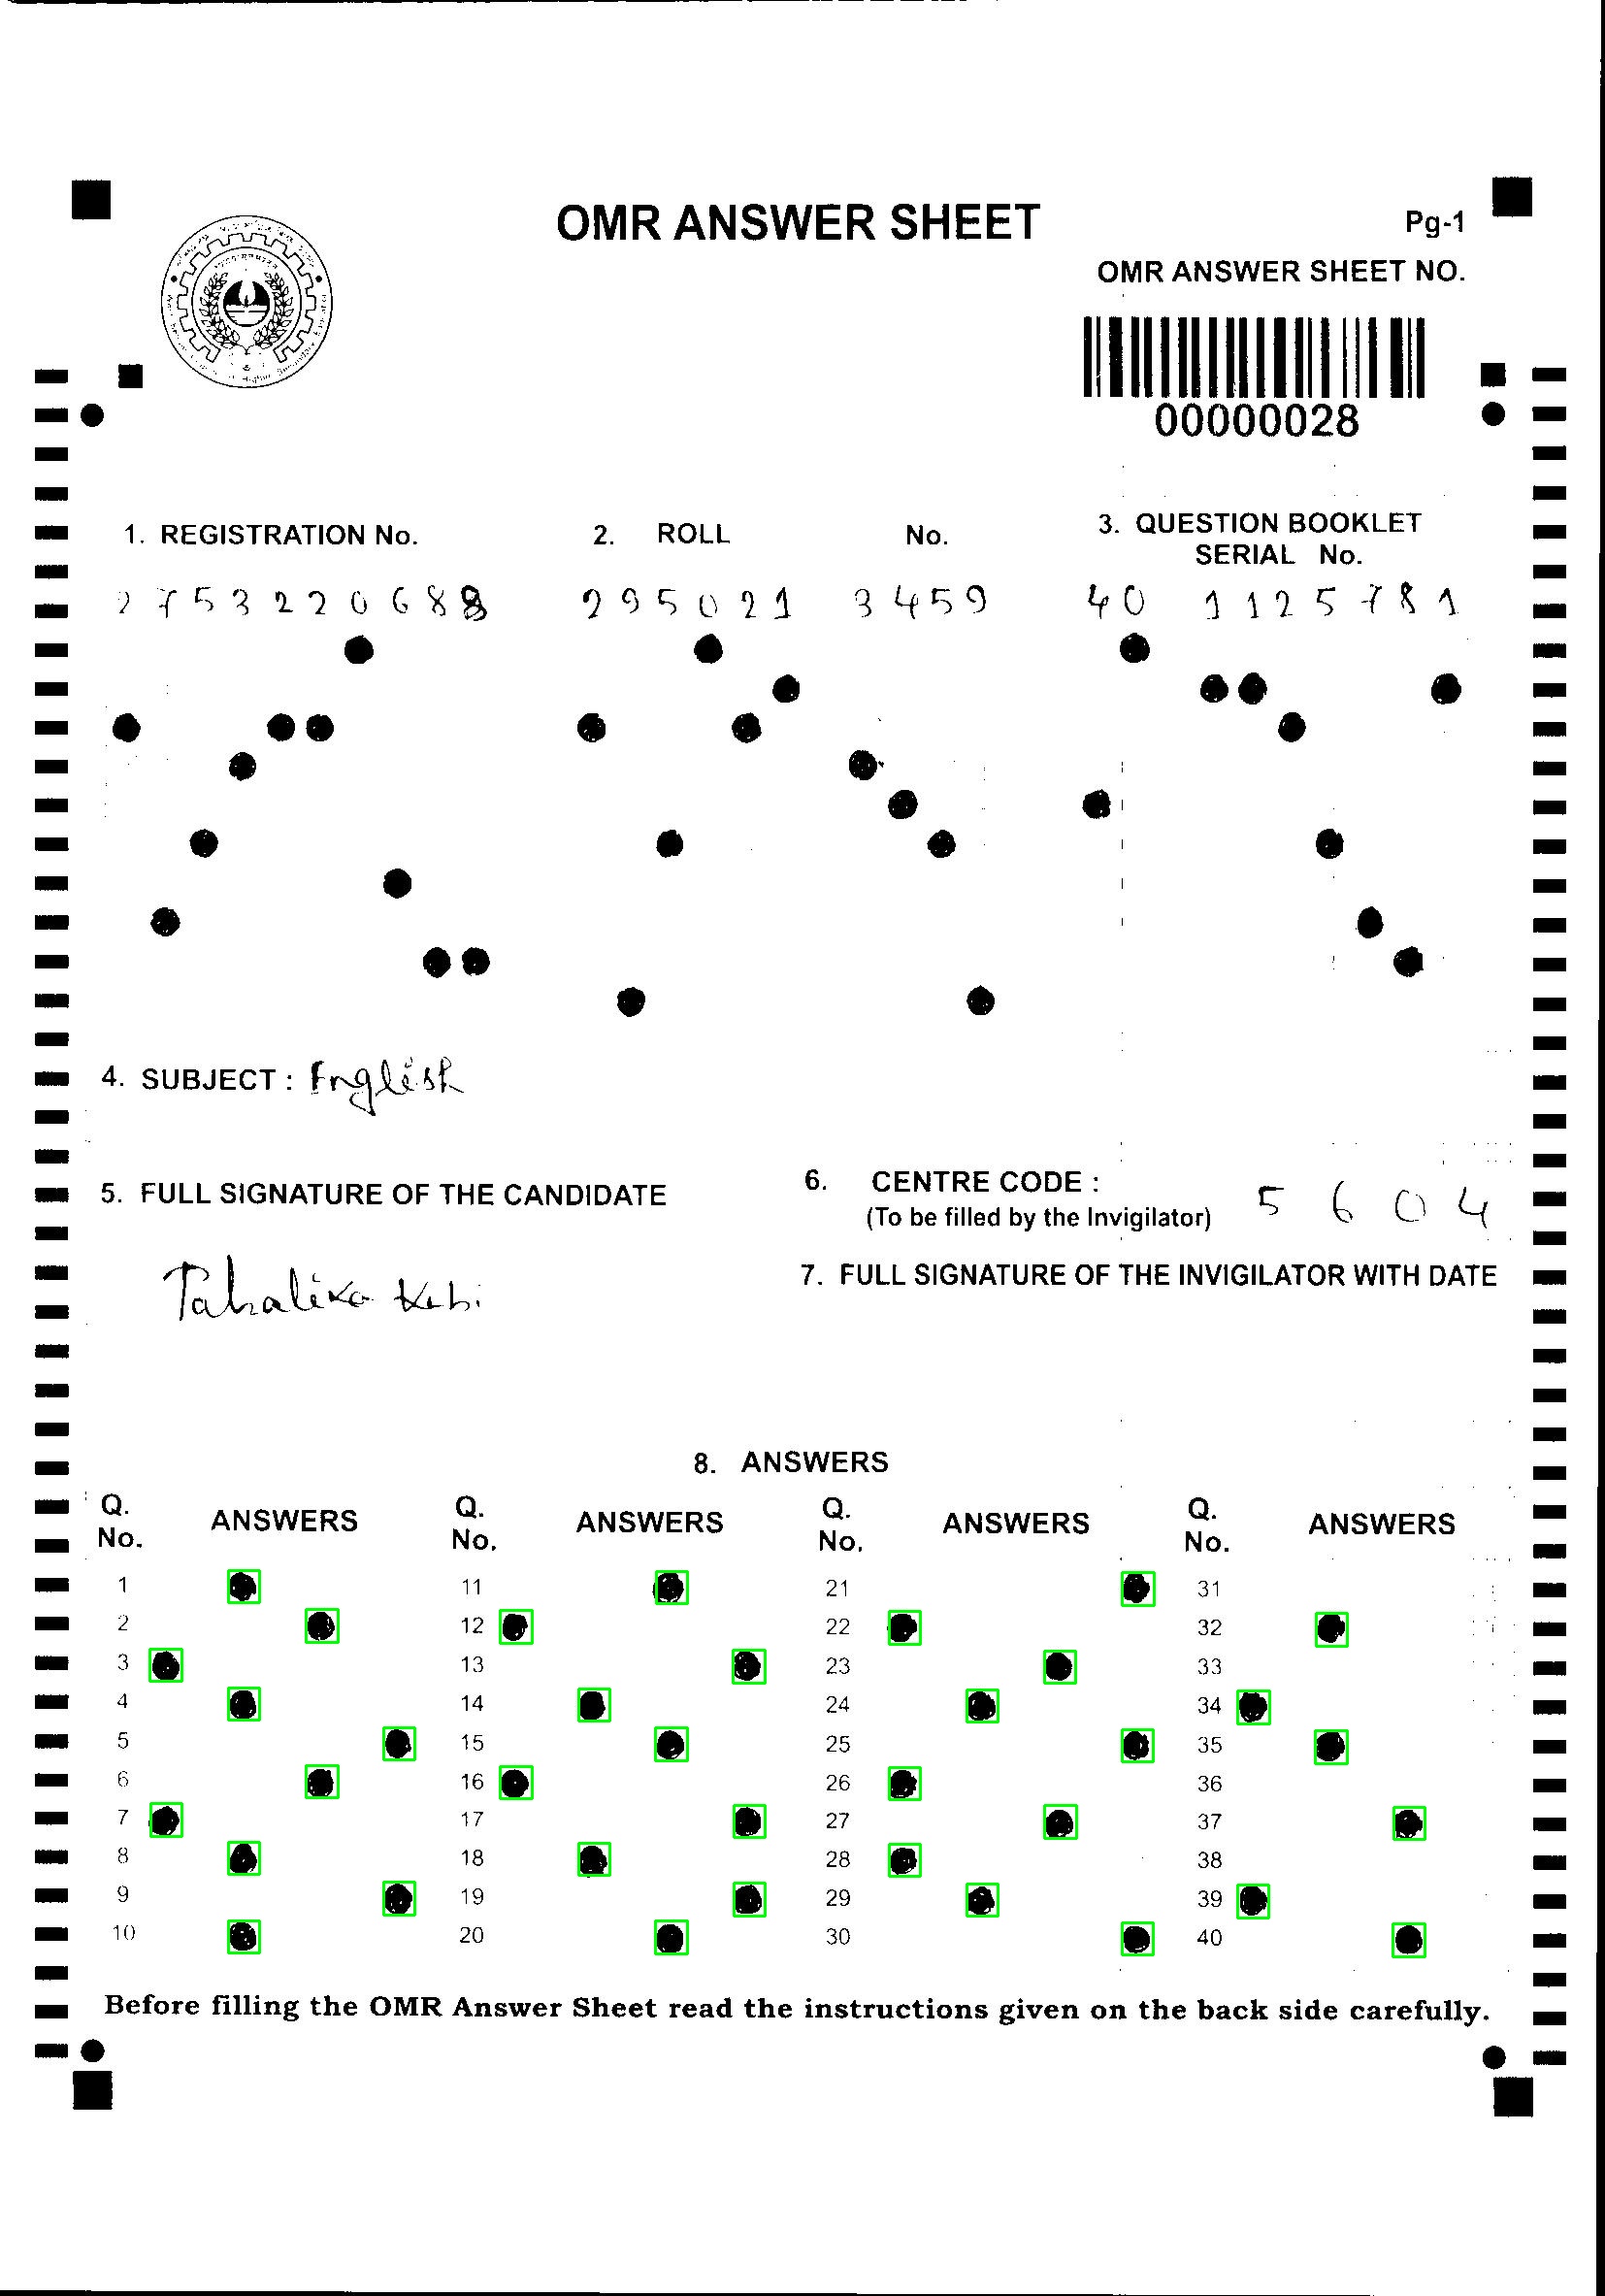 OMR ANSWER SHEET
Pg-1
OMR ANSWER SHEET NO.
00000028
1. REGISTRATION No. 2. ROLL No. 3. QUESTION BOOKLET SERIAL No.
2753220688 295021 3459 40 1125781
4. SUBJECT : English
5. FULL SIGNATURE OF THE CANDIDATE
6. CENTRE CODE : 5604
(To be filled by the Invigilator)
7. FULL SIGNATURE OF THE INVIGILATOR WITH DATE
8. ANSWERS
Q. No. ANSWERS Q. No. ANSWERS Q. No. ANSWERS Q. No. ANSWERS
1 11 21 31
2 12 22 32
3 13 23 33
4 14 24 34
5 15 25 35
6 16 26 36
7 17 27 37
8 18 28 38
9 19 29 39
10 20 30 40
Before filling the OMR Answer Sheet read the instructions given on the back side carefully.